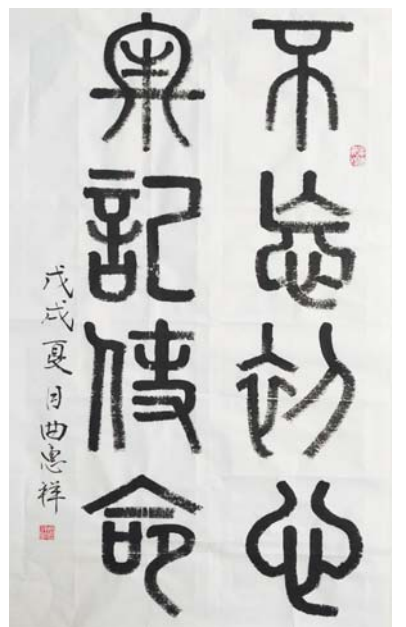 不忘初心
牢記使命
戊戌夏月曲惠祥